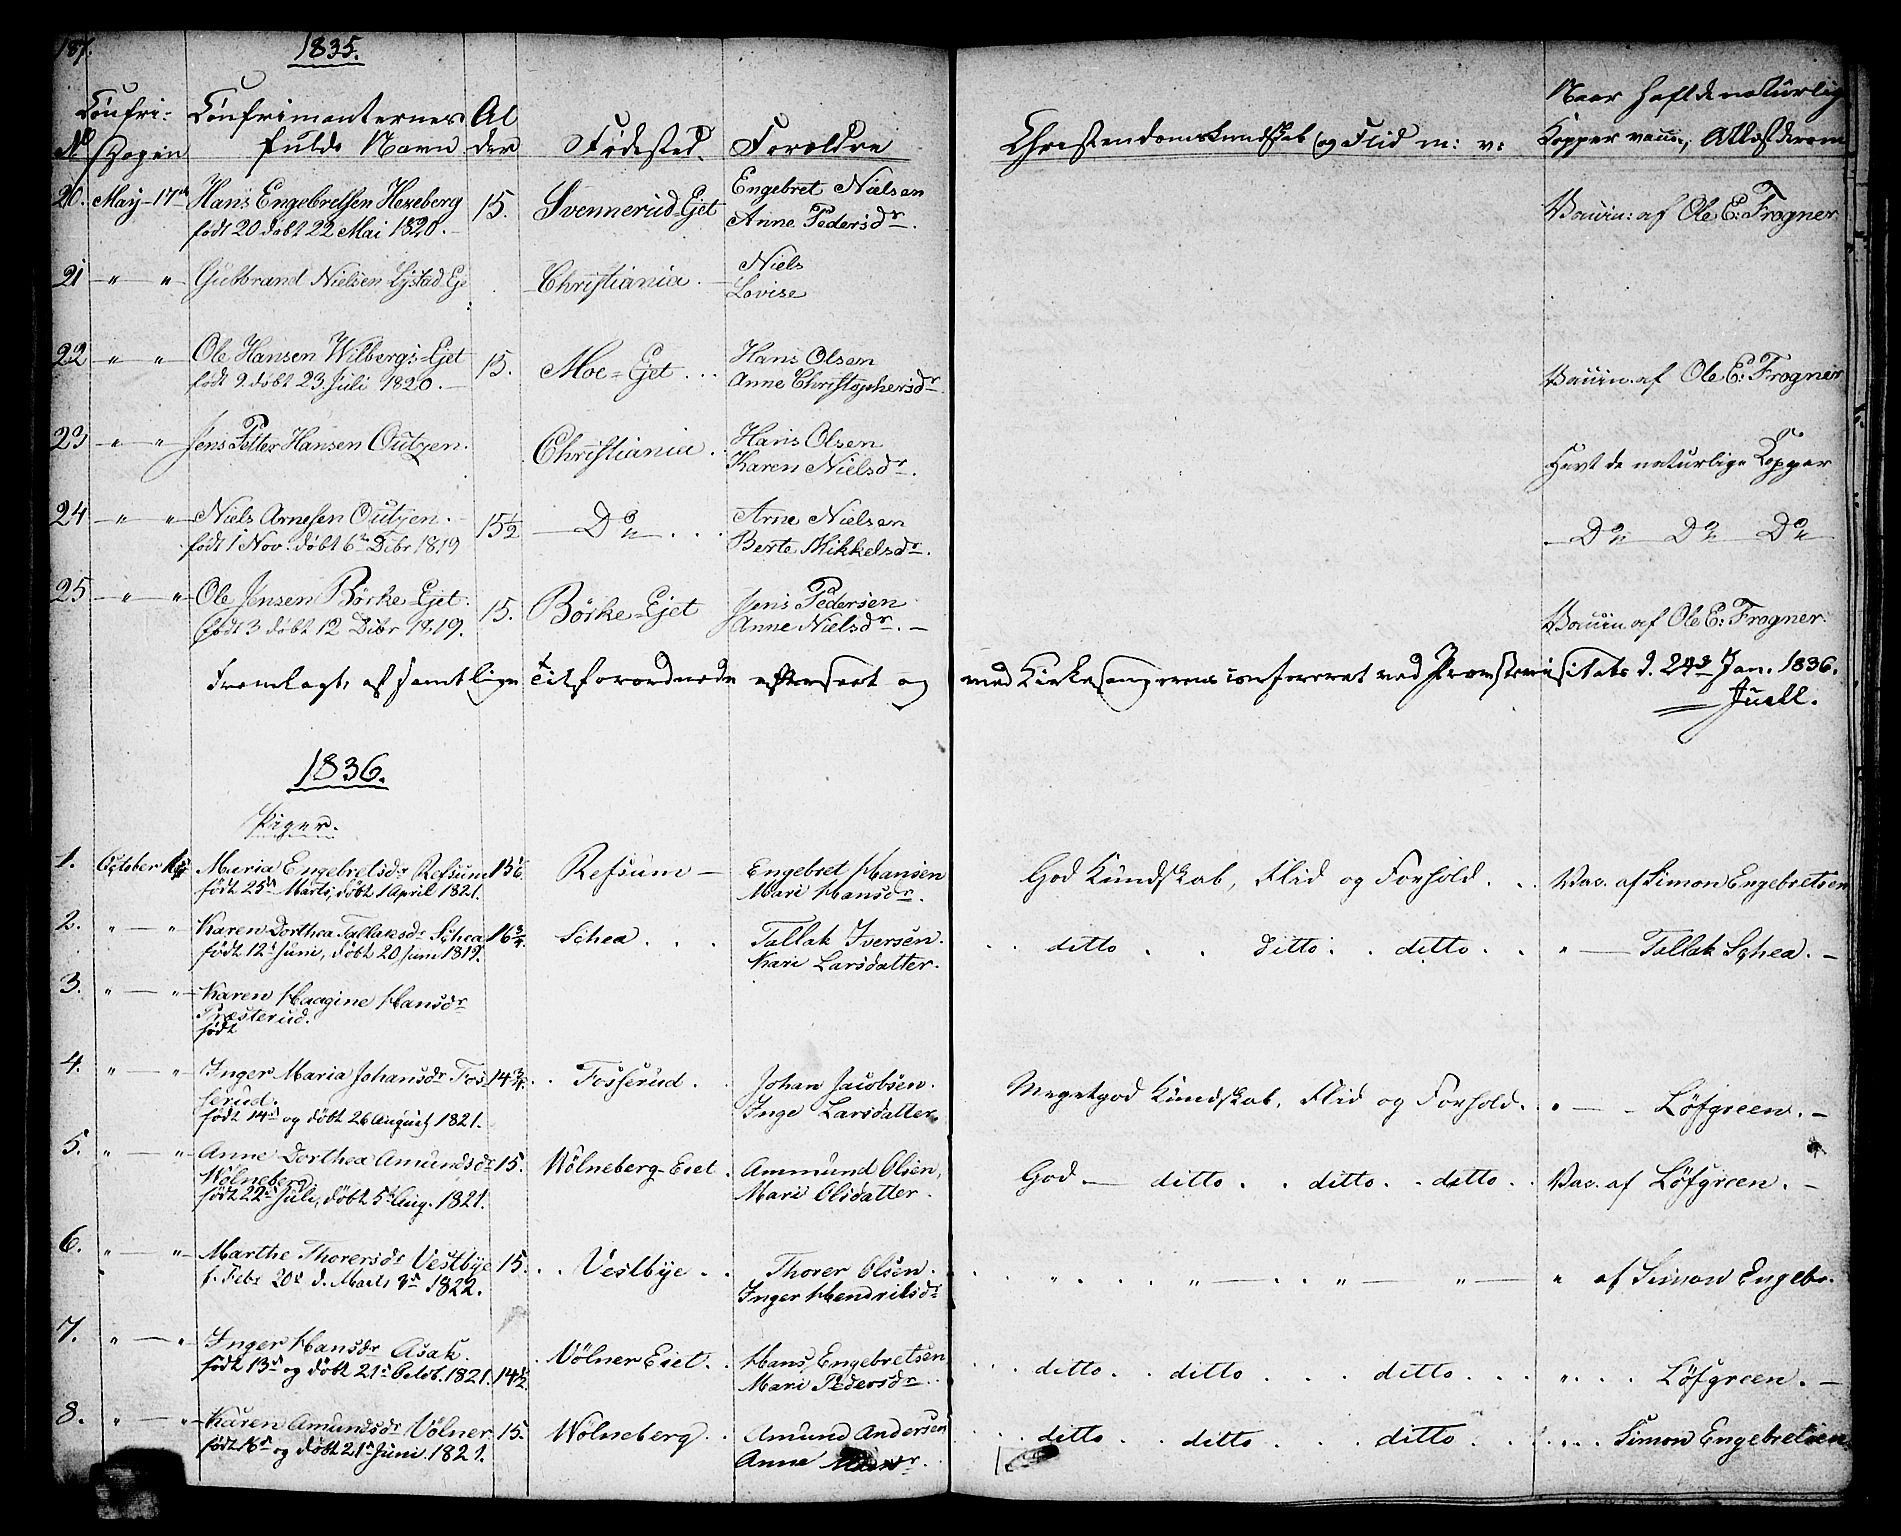 187.
1835.
Confri- Confrimanternes Al Naar haft de naturlige
No Dagen fulde Navn der Fødested. Forældre Christendomskundskab og Flid m: v: Kopper vaccin, Attest derom
20. May 17de Hans Engebretsen Hexeberg 15. Svennerud-Ejet Engebret Nielsen Vaccin: af Ole E: Frogner.
født 20 døbt 22 Mai 1820. Anne Pedersdr.
21 " " Gulbrand Nielsen Lystad Ej Christiania Niels
Lovise
22 " " Ole Hansen Wilbergs-Ejet 15. Moe-Ejet Hans Olsen Vaccin. af Ole E: Frogner
født 9. døbt 23 Juli 1820. Anne Christophersdr.
23 " " Jens Petter Hansen Outzen. Christiania Hans Olsen Havt de naturlige Kopper
Karen Nielsdr.
24 " " Niels Arnesen Outzen. 15½ Do Arne Nielsen Do Do Do
født 1 Nov. døbt 6te Debr 1819 Berte Mikkelsdr.
25 " " Ole Jensen Börke-Ejet. 15. Börke-Ejet Jens Pedersen Vaccin af Ole E: Frogner.
født 3 døbt 12 Debr 1819. Anne Nielsdr.
Fremlagt, af samtlige Tilforordnede efterseet og med Kirkesangerens confereret ved Provstevisitats d. 24de Jan. 1836.
Juell.
1836.
Piger.
1. October Maria Engebretsdr Refsum 15 Refsum Engebret Hansen God Kundskab, Flid og Forhold. Vac. af Simon Engebretsen
født 25de Marts, døbt 1 April 1821. Mari Hansdr.
2. " " Karen Dorthea Tallaksdr Schea 16¾ Schea Tallak Iversen. ditto ditto ditto " Tallak Schea.
født 12te Juni, døbt 20 Juni 1819. Kari Larsdatter.
3. " " Karen Haagine Hansdr
Præsterud.
født
4. " " Inger Maria Johansdr Fos- 14¾ Fosserud Johan Jacobsen. Megetgod Kundskab, Flid og Forhold. " Løfgreen.
serud. Inge Larsdatter
født 14de og døbt 26 August 1821.
5. " " Anne Dorthea Amundsdr 15. Wölneberg-Eiet Ammund Olsen, God ditto ditto ditto Vac. af Løfgreen.
Wölneberg Mari Olsdatter.
født 22de Juli, døbt 5te Aug. 1821.
6. " " Marthe Thorersdr Vestbye 15. Vestbye Thorer Olsen. " " " " " af Simon Engebr.
f. Febr 20de d. Marts 1822. Inger Hendriksdr
7. " " Inger Hansdr Asak. Völner Eiet Hans Engebretsen ditto ditto ditto " Løfgreen.
født 13de og døbt 21de Octob. 1821. 14½ Mari Pedersdr
8. " " Karen Amundsdr Völner 15. Wölneberg Amund Andersen ditto ditto ditto Simon Engebretsen
født og døbt 21de Juni 1821. Anne